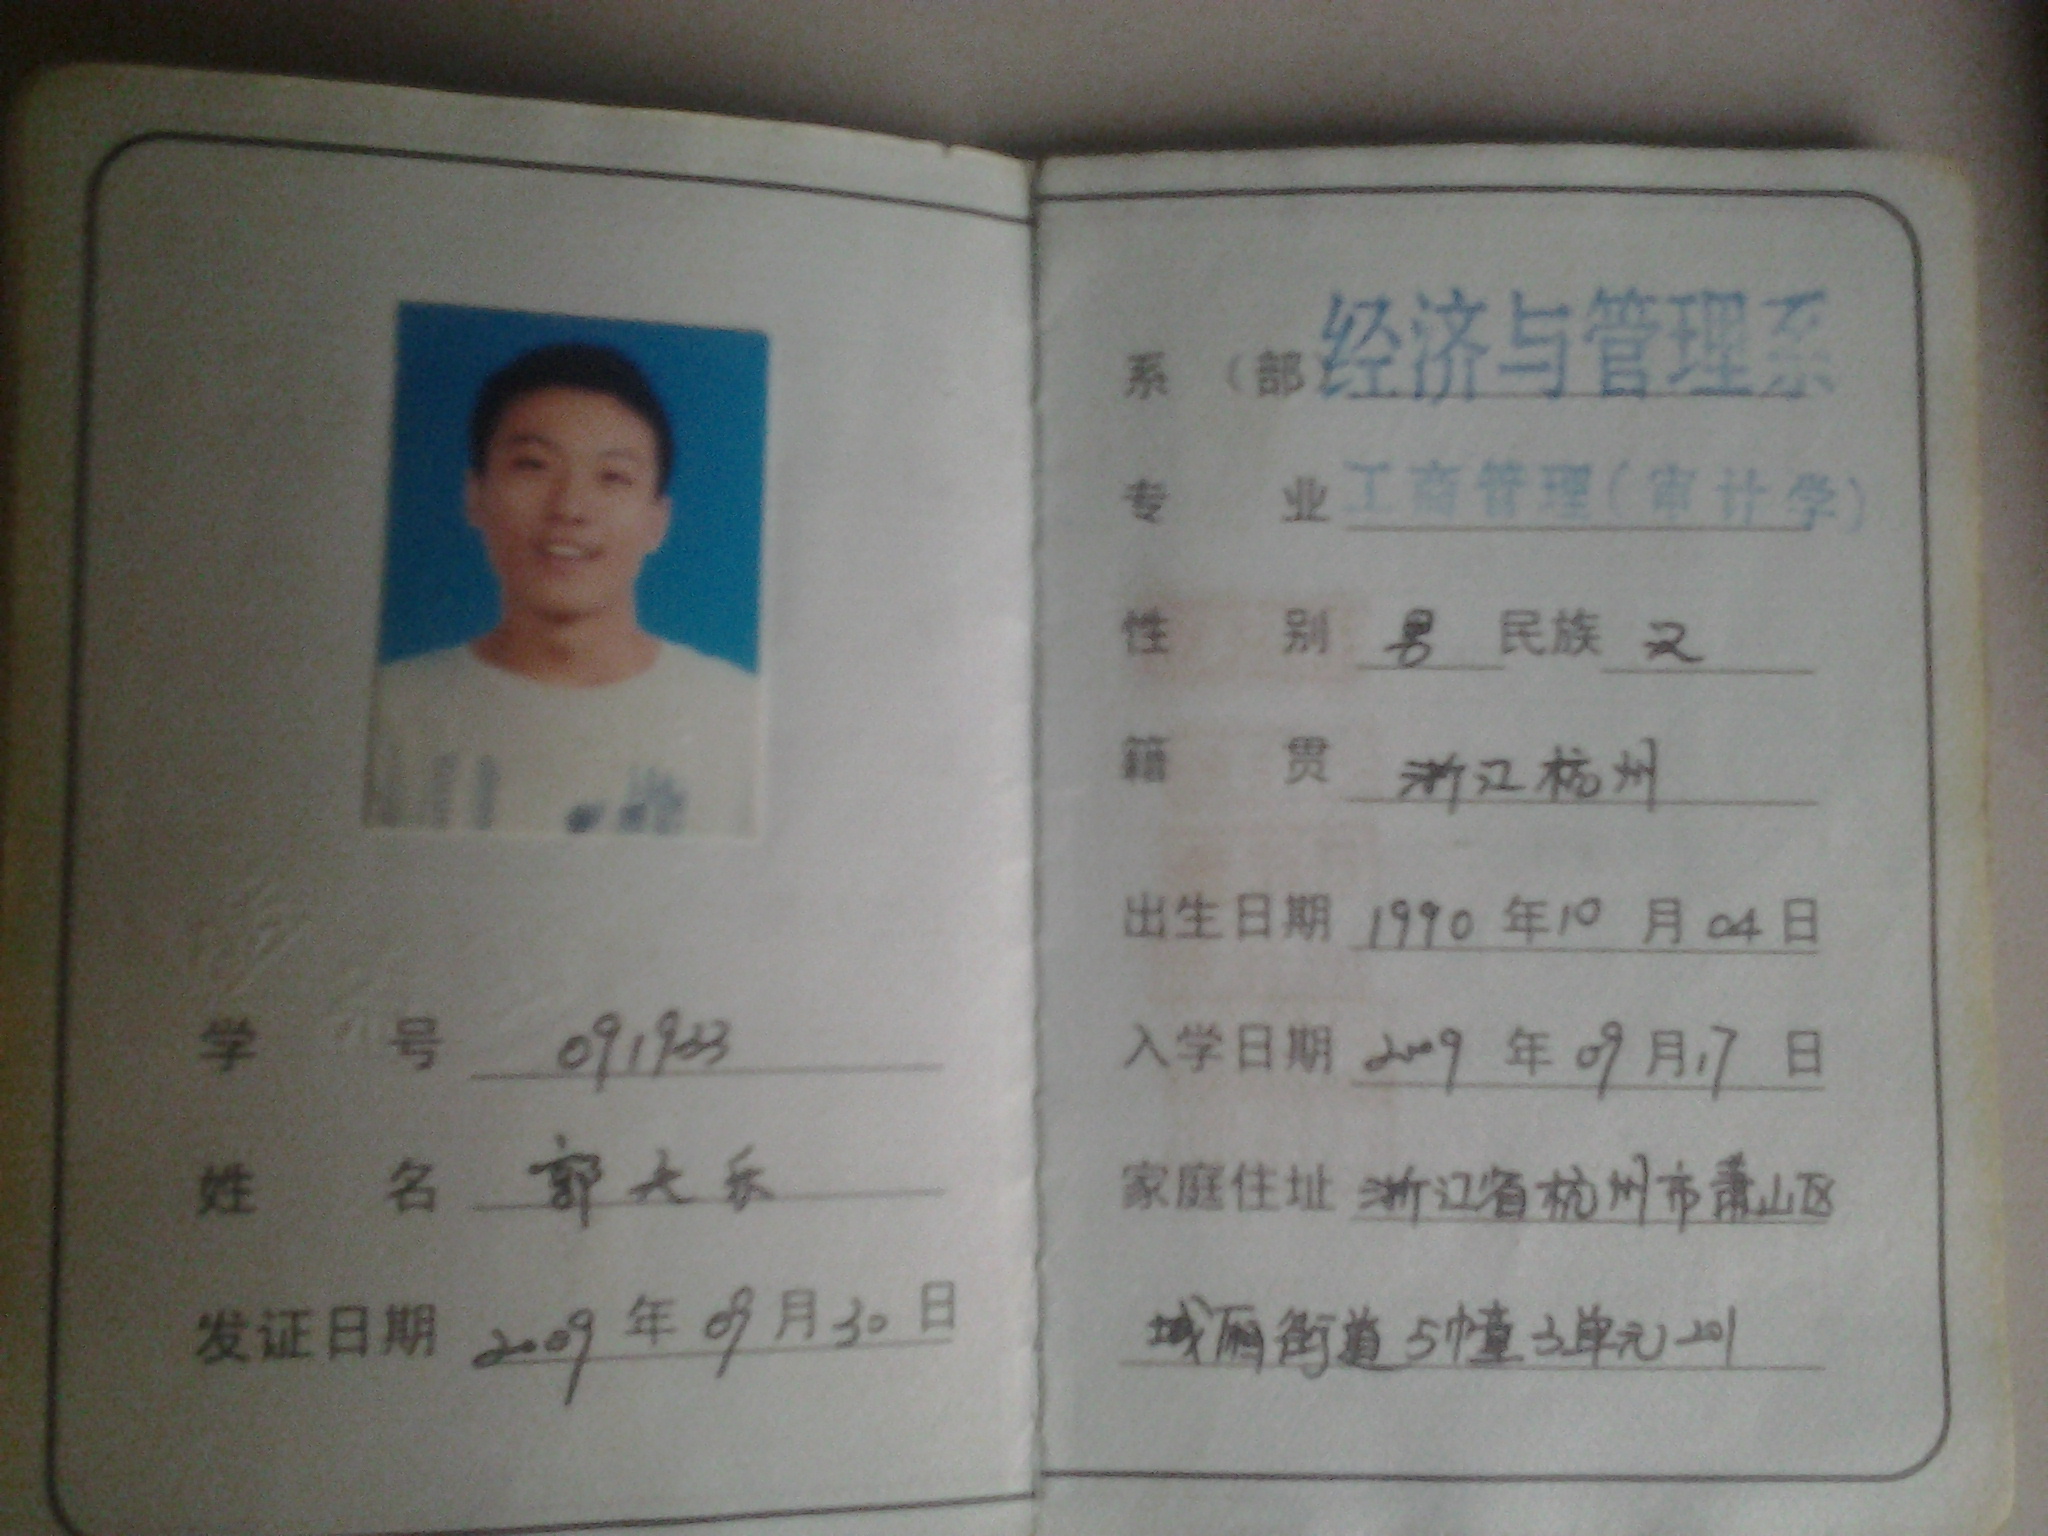 学 号 091933
姓 名 郭天乐
发证日期 2009 年 09 月 30 日
系 (部) 经济与管理系
专 业 工商管理(审计学)
性 别 男 民族 汉
籍 贯 浙江杭州
出生日期 1990 年 10 月 04 日
入学日期 2009 年 09 月 17 日
家庭住址 浙江省杭州市萧山区
城厢街道5幢3单元201